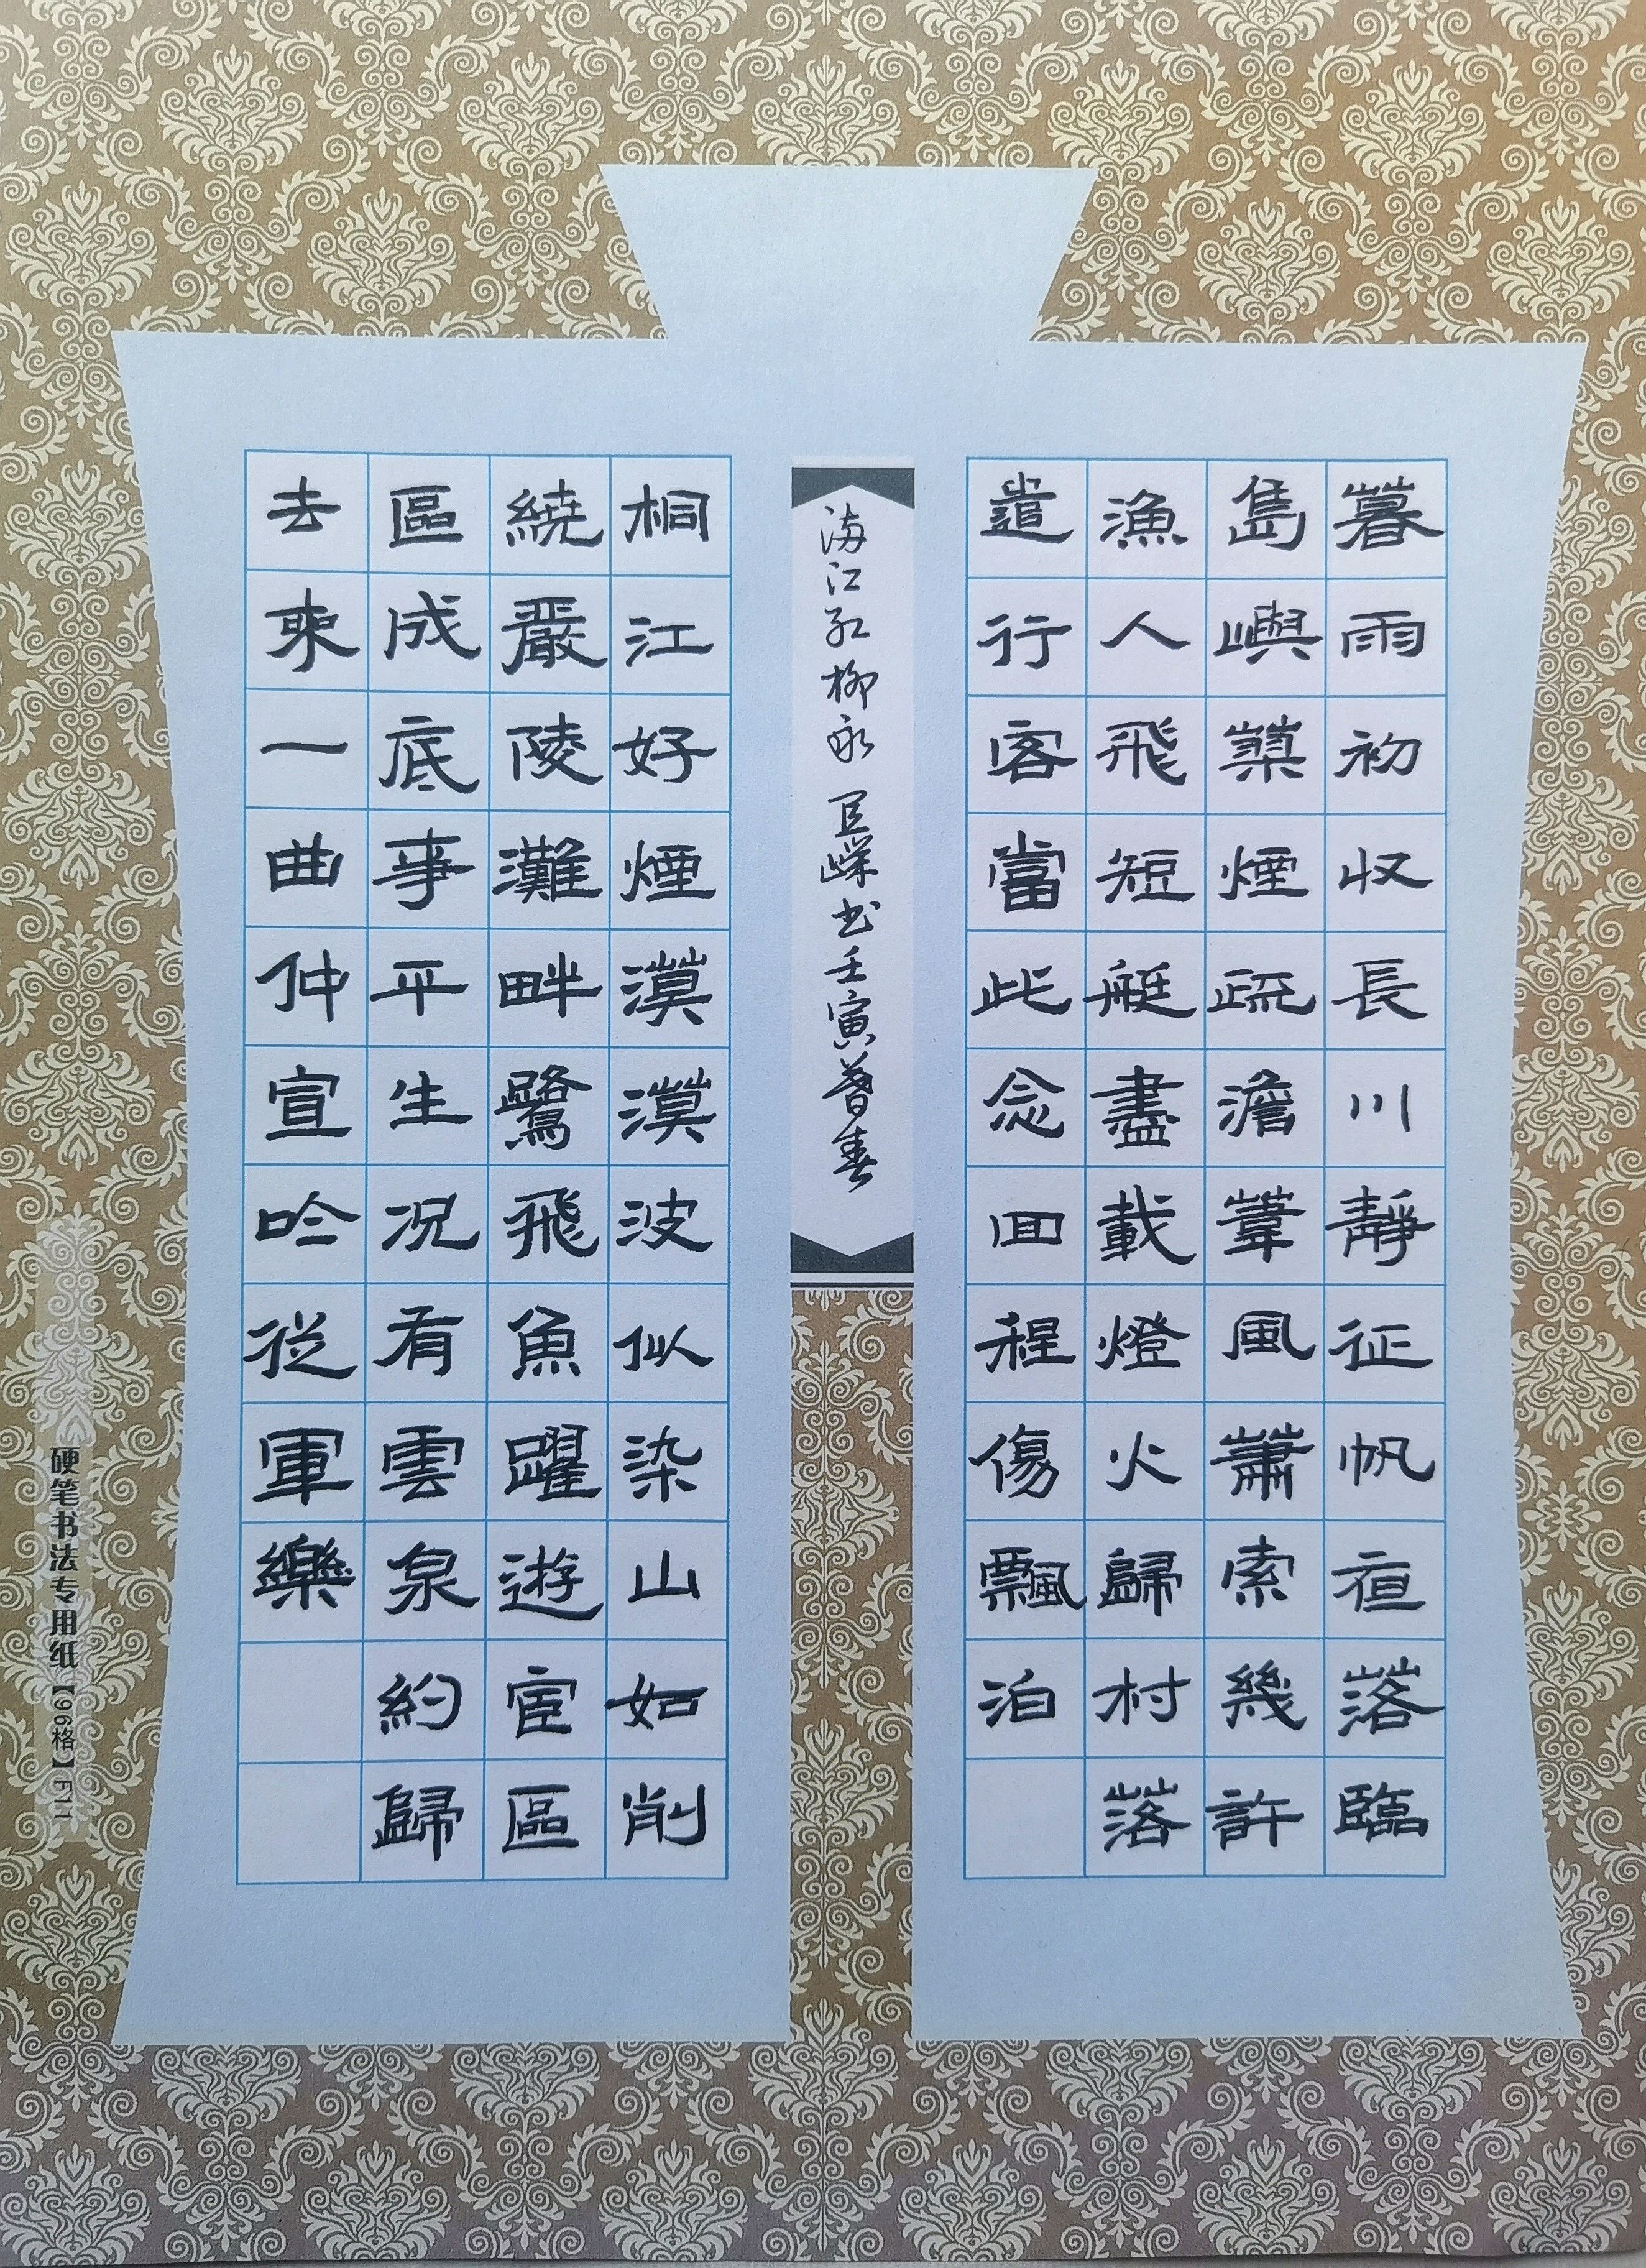 暮雨初収長川靜征帆亱落臨
島嶼蓼煙疏澹葦風蕭索幾許
漁人飛短艇盡載燈火歸村落
遣行客當此念回程傷飄泊
满江红柳永 巨嵘书壬寅暮春
桐江好煙漠漠波似染山如削
繞嚴陵灘畔鷺飛魚躍遊宦區
區成底事平生况有雲泉約歸
去來一曲仲宣吟從軍樂
硬笔书法专用纸【96格】F11